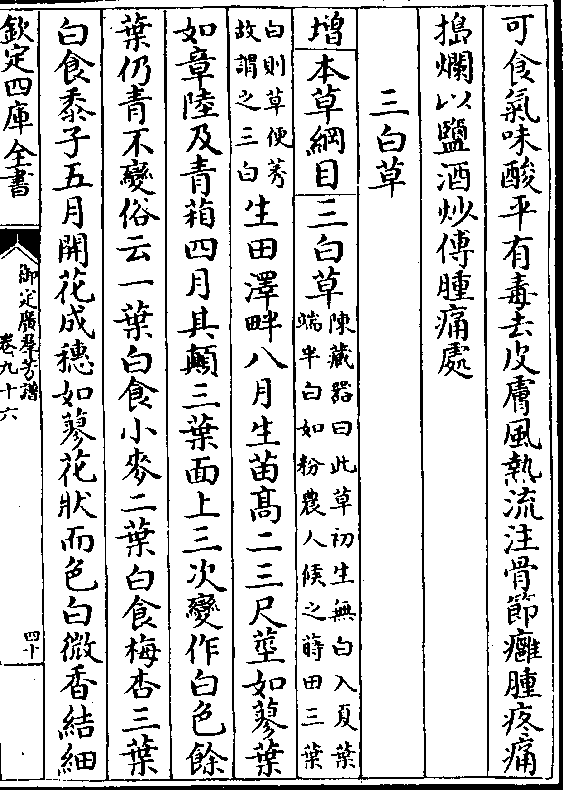 可食氣味酸平有毒去皮膚風熱流注骨節癰腫疼痛
搗爛以鹽酒炒傅腫痛處
三白草
增本草綱目三白草陳藏器曰此草初生無白入夏葉
端半白如粉農人候之蒔田三葉
白則草便莠
故謂之三白生田澤畔八月生苗高二三尺莖如蓼葉
如章陸及青葙四月其顛三葉面上三次變作白色餘
葉仍青不變俗云一葉白食小麥二葉白食梅杏三葉
白食黍子五月開花成穗如蓼花狀而色白微香結細
欽定四庫全書
御定廣羣芳譜
卷九十六
四十